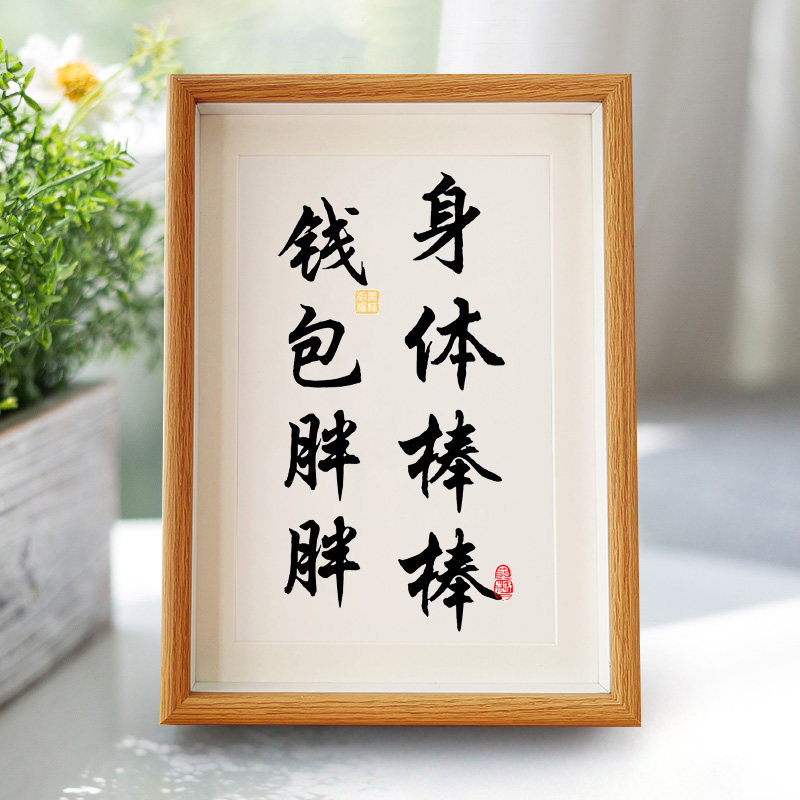 身体棒棒
钱包胖胖